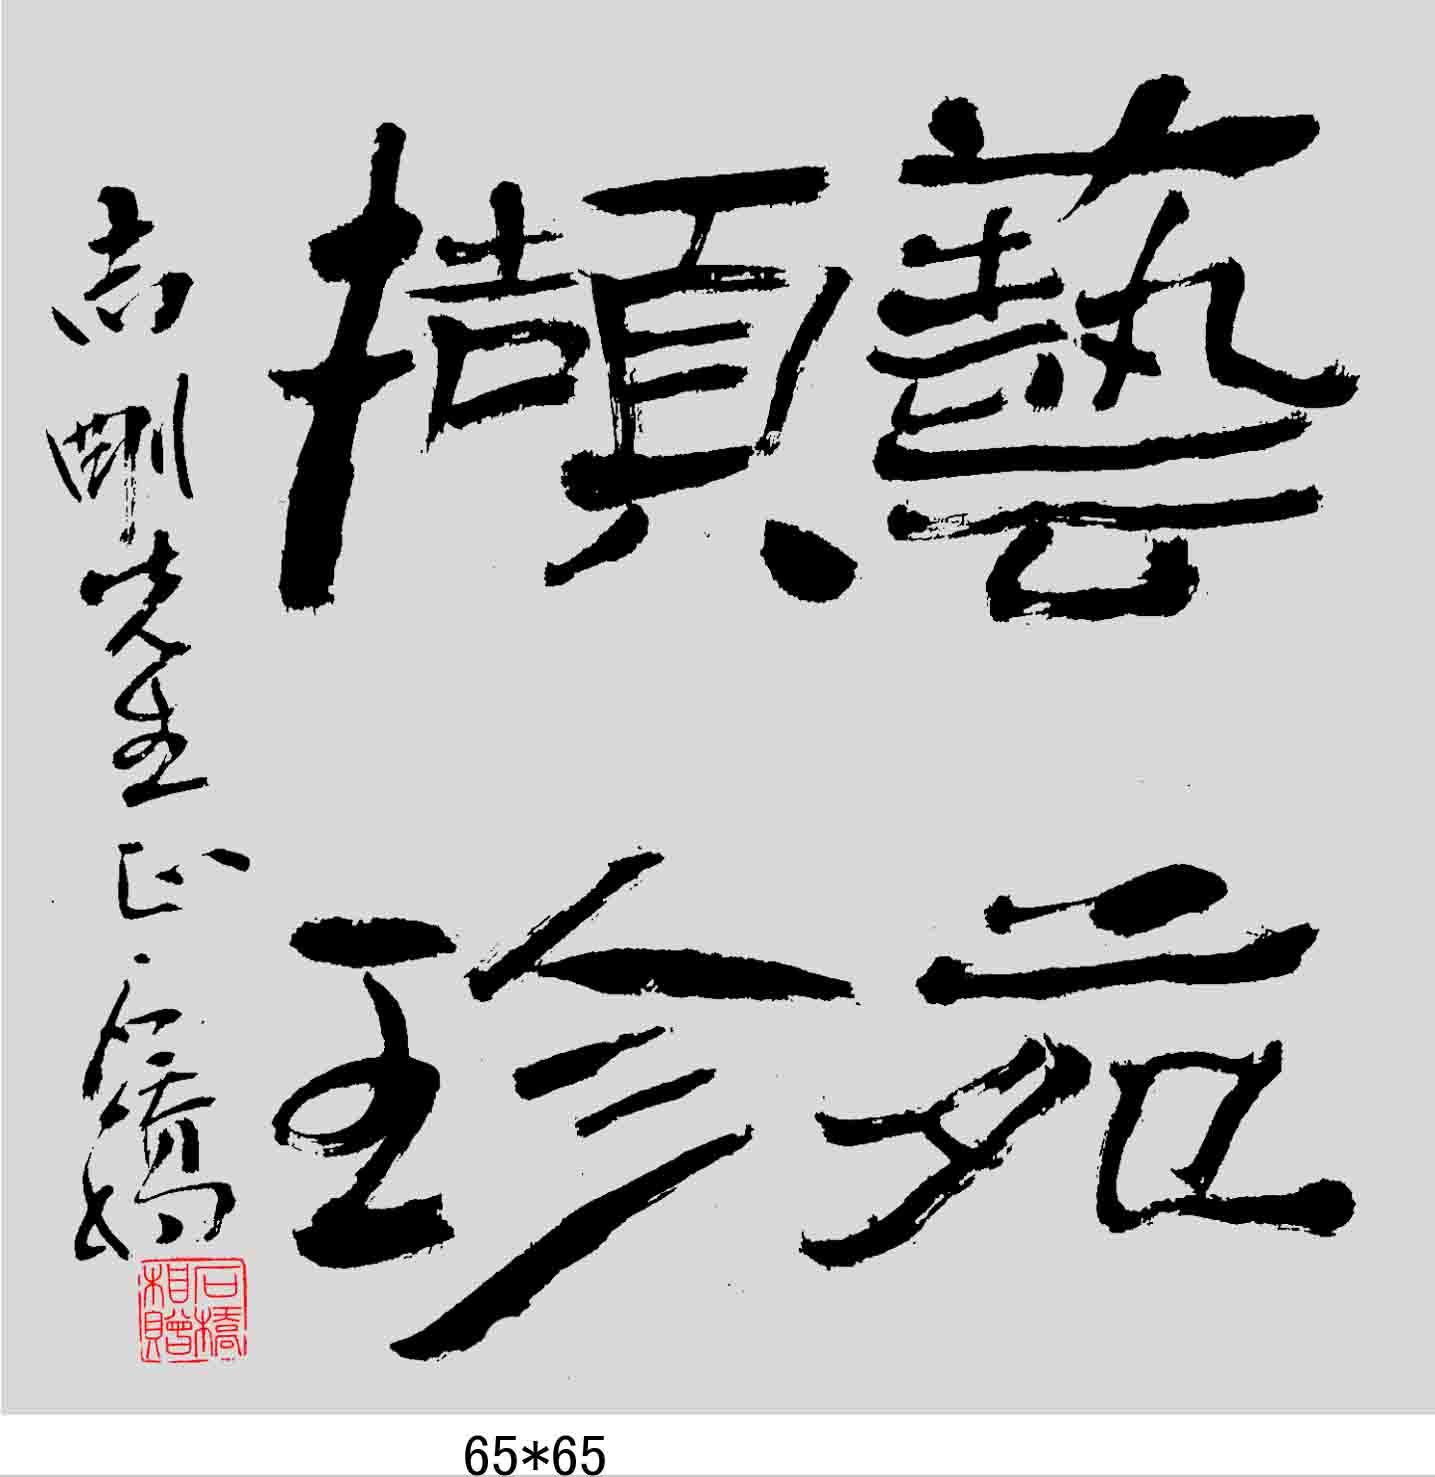 藝苑
擷珍
志剛先生正之石橋
石橋
相贈
65*65